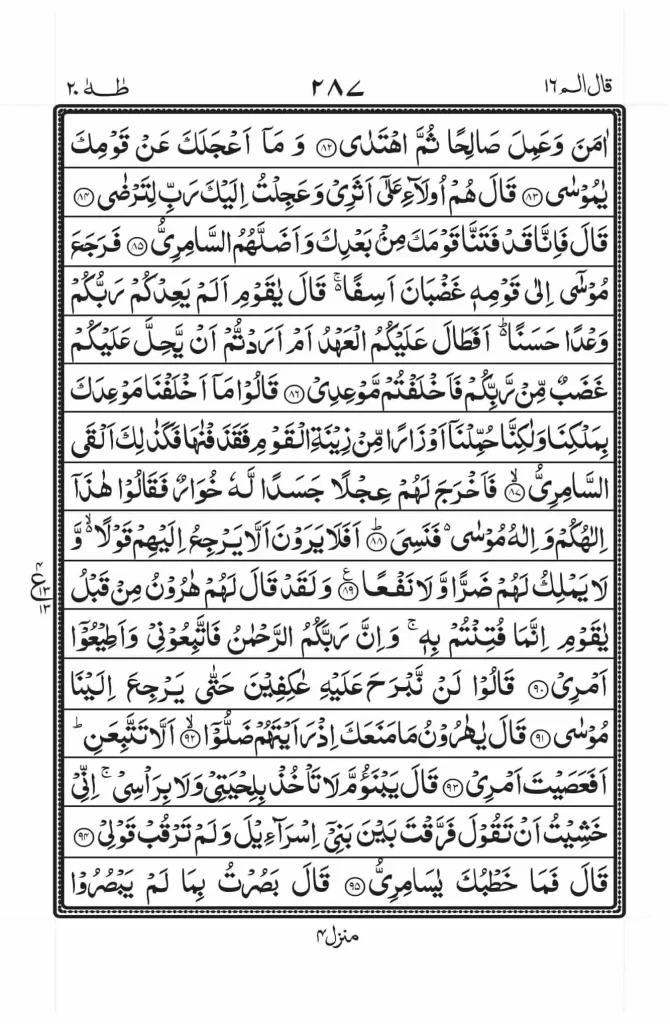 قال الم ١٦ ٢٨٧ طٰهٰ ٢٠
اٰمَنَ وَعَمِلَ صَالِحًا ثُمَّ اهْتَدٰى ﴿۸۲﴾ وَ مَاۤ اَعْجَلَكَ عَنْ قَوْمِكَ
يٰمُوْسٰى ﴿۸۳﴾ قَالَ هُمْ اُولَآءِ عَلٰۤى اَثَرِىْ وَ عَجِلْتُ اِلَيْكَ رَبِّ لِتَرْضٰى ﴿۸۴﴾
قَالَ فَاِنَّا قَدْ فَتَنَّا قَوْمَكَ مِنْۢ بَعْدِكَ وَ اَضَلَّهُمُ السَّامِرِىُّ ﴿۸۵﴾ فَرَجَعَ
مُوْسٰۤى اِلٰى قَوْمِهٖ غَضْبَانَ اَسِفًا ۚ قَالَ يٰقَوْمِ اَلَمْ يَعِدْكُمْ رَبُّكُمْ
وَعْدًا حَسَنًا ؕ اَفَطَالَ عَلَيْكُمُ الْعَهْدُ اَمْ اَرَدْتُّمْ اَنْ يَّحِلَّ عَلَيْكُمْ
غَضَبٌ مِّنْ رَّبِّكُمْ فَاَخْلَفْتُمْ مَّوْعِدِىْ ﴿۸۶﴾ قَالُوْا مَاۤ اَخْلَفْنَا مَوْعِدَكَ
بِمَلْكِنَا وَلٰكِنَّا حُمِّلْنَاۤ اَوْزَارًا مِّنْ زِيْنَةِ الْقَوْمِ فَقَذَفْنٰهَا فَكَذٰلِكَ اَلْقَى
السَّامِرِىُّ ۙ﴿۸۷﴾ فَاَخْرَجَ لَهُمْ عِجْلًا جَسَدًا لَّهٗ خُوَارٌ فَقَالُوْا هٰذَاۤ
اِلٰهُكُمْ وَ اِلٰهُ مُوْسٰى ۬ فَنَسِىَ ؕ﴿۸۸﴾ اَفَلَا يَرَوْنَ اَلَّا يَرْجِعُ اِلَيْهِمْ قَوْلًا ۬ۙ وَّ
لَا يَمْلِكُ لَهُمْ ضَرًّا وَّ لَا نَفْعًا ﴿۸۹﴾ وَ لَقَدْ قَالَ لَهُمْ هٰرُوْنُ مِنْ قَبْلُ
ع ۴ ۱۳ ۱۳
يٰقَوْمِ اِنَّمَا فُتِنْتُمْ بِهٖ ۚ وَ اِنَّ رَبَّكُمُ الرَّحْمٰنُ فَاتَّبِعُوْنِىْ وَ اَطِيْعُوْۤا
اَمْرِىْ ﴿۹۰﴾ قَالُوْا لَنْ نَّبْرَحَ عَلَيْهِ عٰكِفِيْنَ حَتّٰى يَرْجِعَ اِلَيْنَا
مُوْسٰى ﴿۹۱﴾ قَالَ يٰهٰرُوْنُ مَا مَنَعَكَ اِذْ رَاَيْتَهُمْ ضَلُّوْۤا ۙ﴿۹۲﴾ اَلَّا تَتَّبِعَنِ ؕ
اَفَعَصَيْتَ اَمْرِىْ ﴿۹۳﴾ قَالَ يَبْنَؤُمَّ لَا تَاْخُذْ بِلِحْيَتِىْ وَلَا بِرَاْسِىْ ۚ اِنِّىْ
خَشِيْتُ اَنْ تَقُوْلَ فَرَّقْتَ بَيْنَ بَنِىْۤ اِسْرَآءِيْلَ وَ لَمْ تَرْقُبْ قَوْلِىْ ﴿۹۴﴾
قَالَ فَمَا خَطْبُكَ يٰسَامِرِىُّ ﴿۹۵﴾ قَالَ بَصُرْتُ بِمَا لَمْ يَبْصُرُوْا
منزل ۴